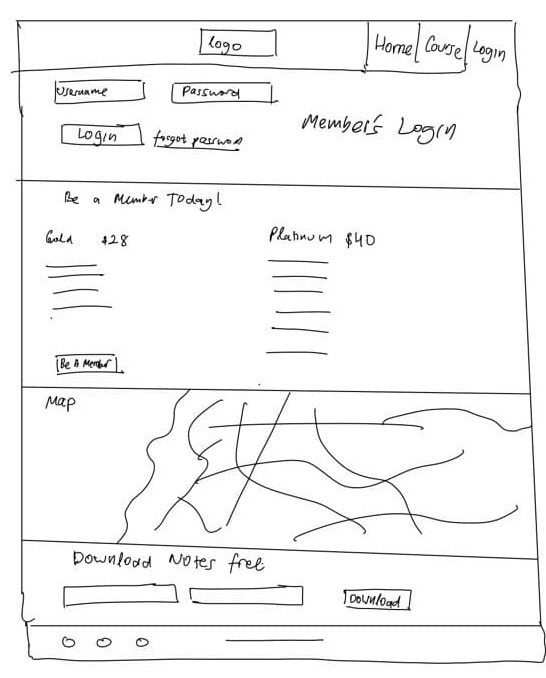 Logo
Home Course Login
Username Password
Member's Login
Login forgot password
Be a Member Today!
Gold $28 Platinum $40
Be A Member
Map
Download Notes free
Download